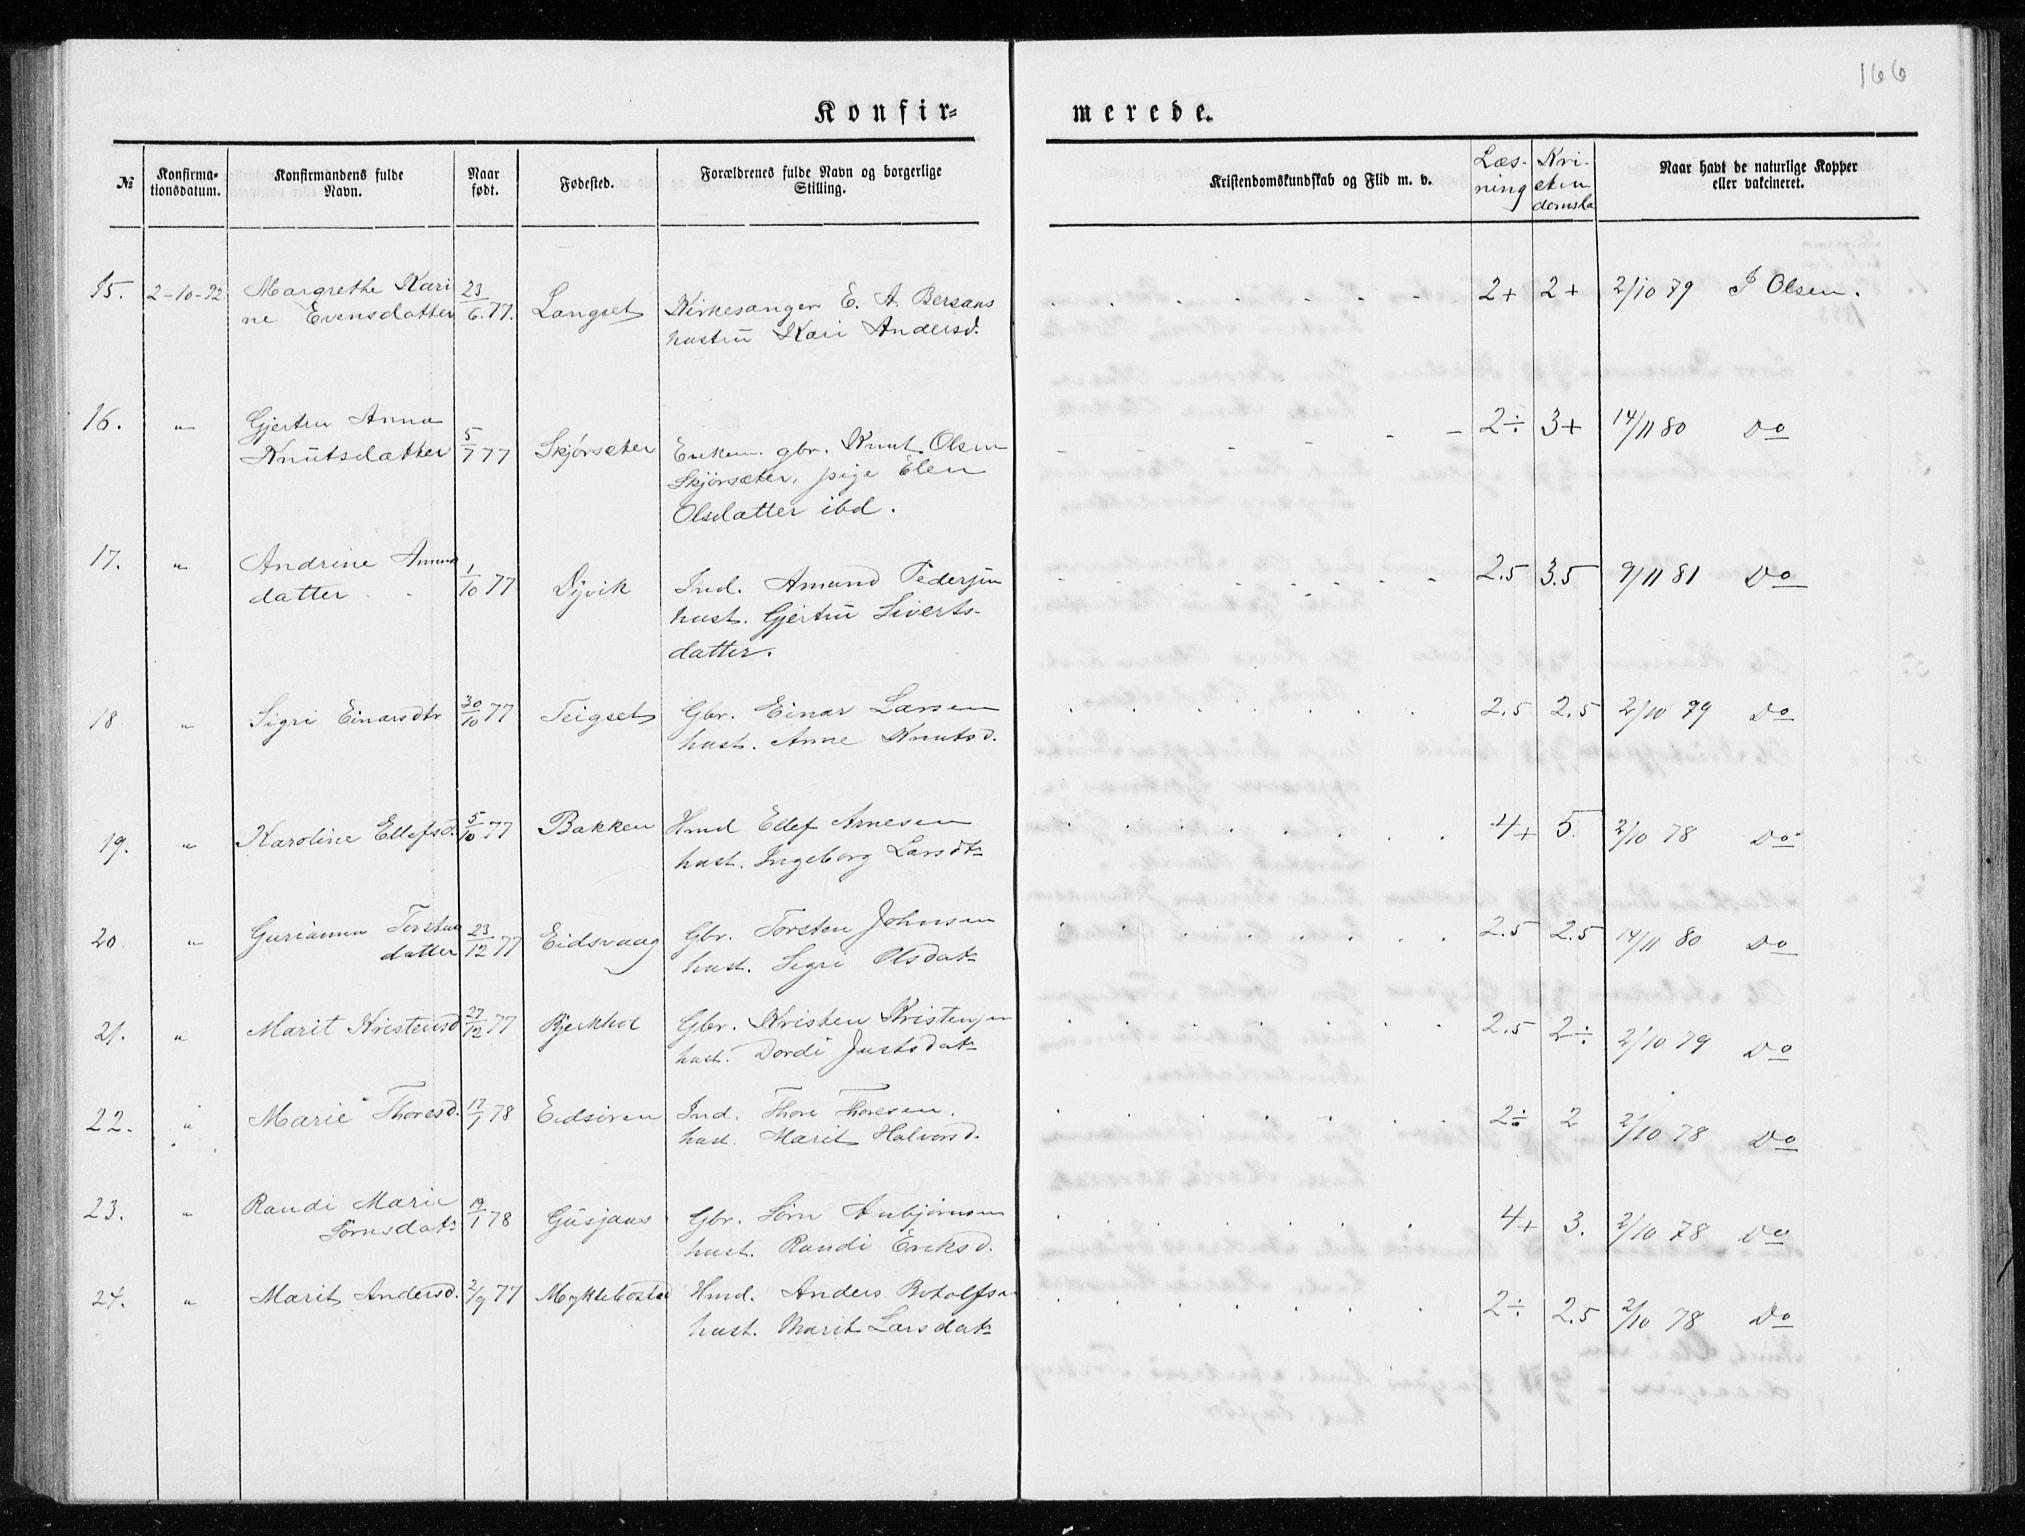 166
Konfir-
merede.
№
Konfirma-
tionsdatum.
Konfirmandens fulde
Navn.
Naar
født.
Fødested.
Forældrenes fulde Navn og borgerlige
Stilling.
Kristendomskundskab og Flid m. v.
Læs-
ning
Kri-
sten
domsk
Naar havt de naturlige Kopper
eller vakcineret.
15. 2-10-92 Margrethe Kari 23/6 77. Langset Kirkesanger E. A. Bersaas 2+ 2+ 2/10 79 J Olsen.
ne Evensdatter hustru Kari Andersd.
16. " Gjertru Anna 2÷ 3+ 14/11 80 Do
Knutsdatter 5/7 77 Skjørsæter Enkem. gbr. Knut Olsen
Skjørsæter, pige Elen
Olsdatter ibd.
17. " Andrine Amund 1/10 77 Dyvik Ind. Amund Pedersen 2.5 3.5 9/11 81 Do
datter hust. Gjertru Siverts-
datter.
18. " Sigri Einarsdtr 30/10 77 Teigset Gbr. Einar Larsen 2.5 2.5 2/10 79 Do
hust. Anne Knutsd.
19. " Karoline Ellefsd. 5/10 77 Bakken Hmd Ellef Arnesen 4+ 5. 2/10 78 Do
hust. Ingeborg Larsdtr
20. " Gurianna Torsten 23/12 77 Eidsvaag Gbr. Torsten Johnsen 2.5 2.5 14/11 80 Do
datter hust. Sigri Olsdatr
21. " Marit Kristensd 27/12 77 Bjerkhol Gbr. Kristen Kristensen 2.5 2÷ 2/10 79 Do
hust. Dordi Justsdatr
22. " Marie Thoresd. 17/1 78 Eidsøren Ind. Thore Thoresen. 2÷ 2 2/10 78 Do
hust. Marit Halvorsd.
23. " Randi Marie 19/1 78 Gusjaas Gbr. Sørn Anbjørnsen 4+ 3. 2/10 78 Do
Sørnsdatr hust. Randi Eriksd.
24. " Marit Andersd. 2/9 77 Myklebostad Hmd. Anders Botolfsn 2÷ 2.5 2/10 78 Do
hust. Marit Larsdatr